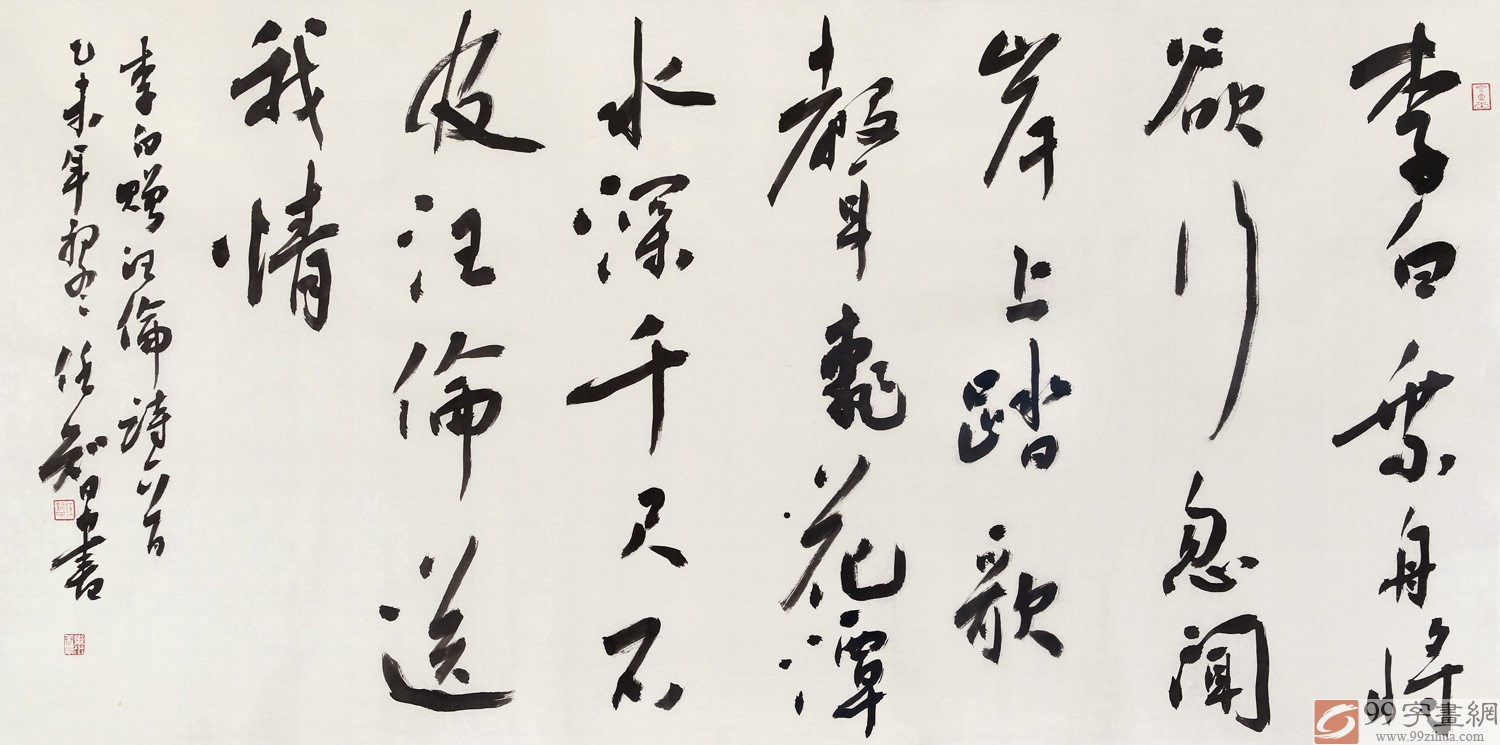 李白乘舟將
欲行忽聞
岸上踏歌
聲桃花潭
水深千尺不
及汪倫送
我情
李白贈汪倫詩一首
乙未年初冬任書
99字畫網
www.99zihua.com